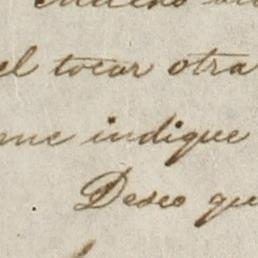 mucho
el tocar otra
me indique
Deseo qu